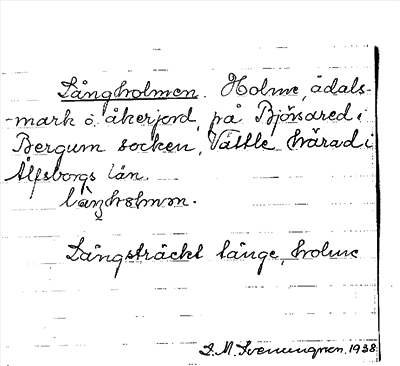 Långholmen. Holme, ådals-
-mark o. åkerjord, på Björsared i
Bergum socken, Vättle härad i
Älfsborgs län.
låŋholmən.
Långsträckt länge, holme
S. M. Svenungsson. 1938